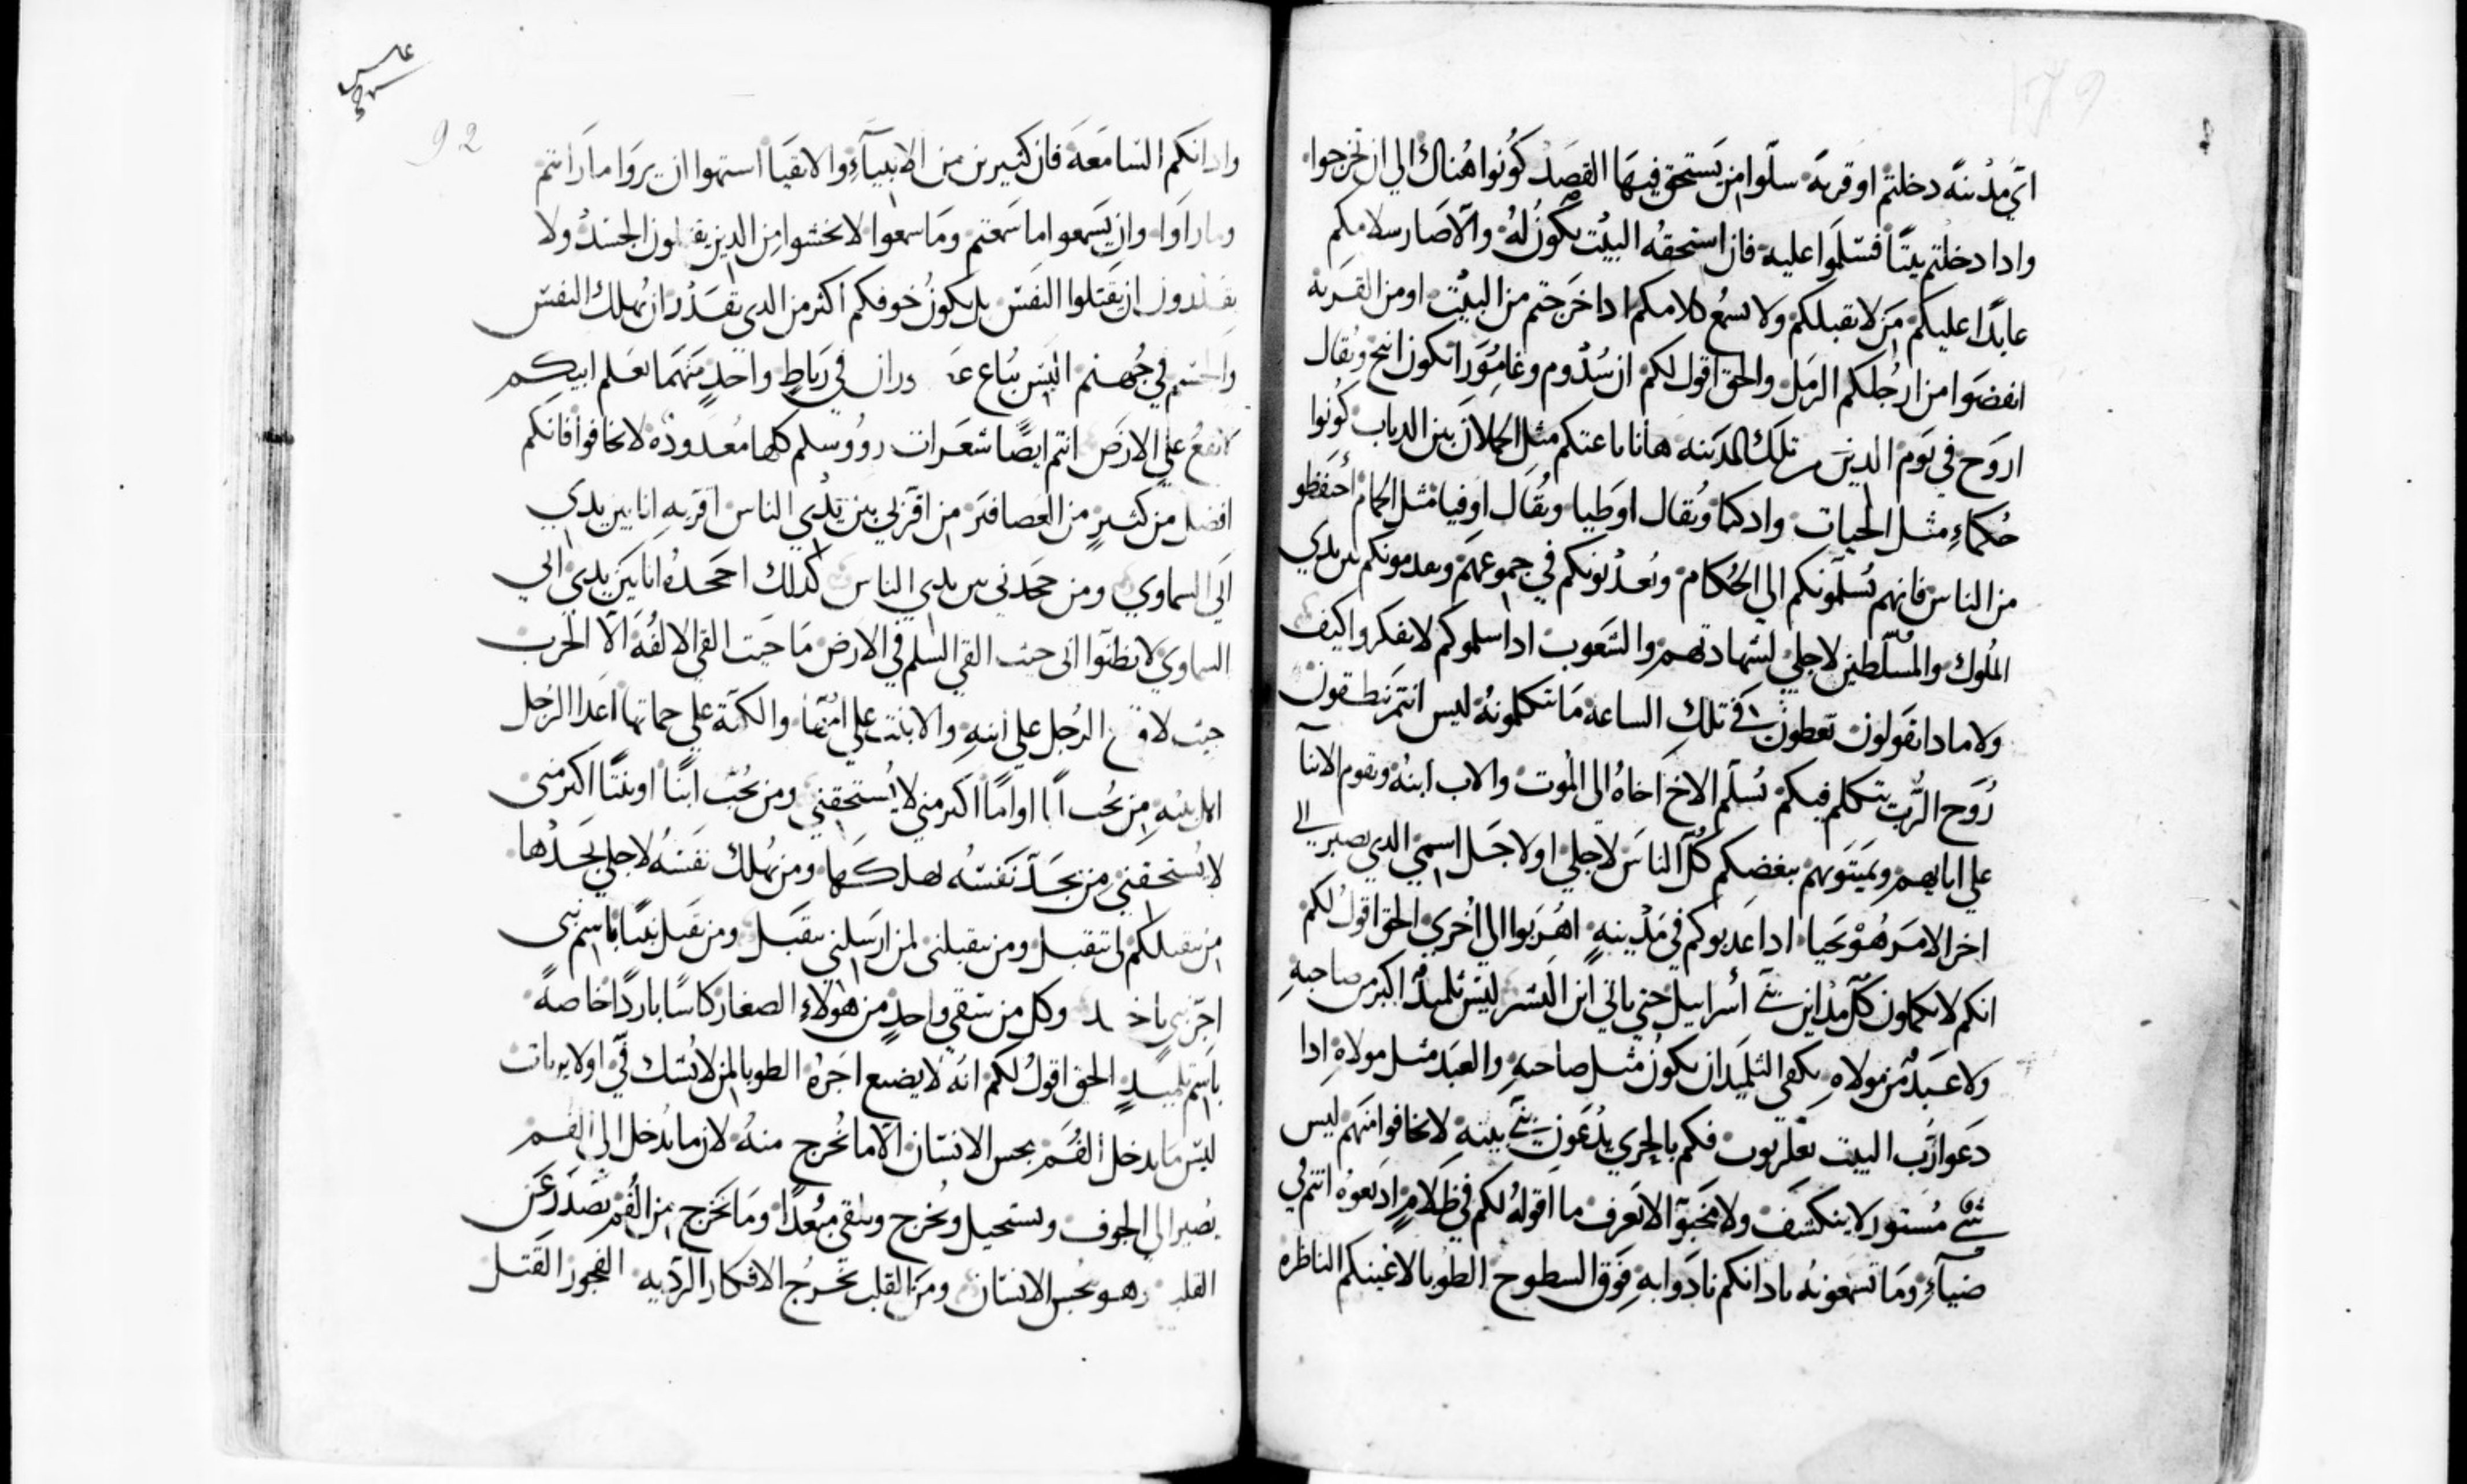 اي مدينه دخلتم او قريه سلوا من يستحق فيها القصد كونوا هناك الي ان تخرجوا
وادا دخلتم بيتا فسلموا عليه فان استحقه البيت يكون له والا صار سلامكم
عايدا عليكم من لا يقبلكم ولا يسمع كلامكم ادا خرجتم من البيت او من القريه
انفضوا من ارجلكم الرمل والحق اقول لكم ان سدوم وغامورا تكون انيح ويقال
اروح في يوم الدين من تلك المدينه هانا باعتكم مثل الحملان بين الدياب كونوا
حكماء مثل الحيات وادكيا ويقال اوطيا ويقال اوفيا مثل الحمام احتفظو
من الناس فانهم يسلمونكم الي الحكام ويعدبونكم في جموعهم ويقدمونكم بين يدي
الملوك والمسلطين لاجلي لشهادتهم والشعوب ادا سلموكم لا تفكروا كيف
ولا مادا تقولون تعطون في تلك الساعه ما تتكلمونه ليس انتم تنطقون
روح الرب يتكلم فيكم يسلم الاخ اخاه الى الموت والاب ابنه ويقوم الابنا
علي ابايهم ويميتونهم يبغضكم كل الناس لاجلي او لاجل اسمي الدي يصبر الي
اخر الامر هو يحيا ادا عدبوكم في مدينه اهربوا الي اخري الحق اقول لكم
انكم لا تكملون كل مداين بني اسراييل حتي ياتي ابن البشر ليس تلميد اكبر من صاحبه
ولا عبد من مولاه يكفي التلميد ان يكون مثل صاحبه والعبد مثل مولاه ادا
دعوا رب البيت بعلزبوب فكم بالحري يدعون بني بيته لا تخافوا منهم ليس
شي مستور لا ينكشف ولا مخبوّ الا يعرف ما اقوله لكم في ظلام اديعوه انتم في
ضياء وما تسمعونه بادانكم نادوا به فوق السطوح الطوبا لاعينكم الناظره
وادانكم السامعه فان كثيرين من الانبياء والاتقيا استهوا ان يروا ما راتم
وما راوا وان يسمعوا ما سمعتم وما سمعوا لا تخشوا من الدين يقتلون الجسد ولا
يقدرون ان يقتلوا النفس بل يكون خوفكم اكثر من الدي يقدر ان يهلك النفس
والجسم في جهنم اليس يباع في رباط واحد منهما بعلم ابيكم
يقع علي الارض انتم ايضا شعرات رووسكم كلها معدوده لا تخافوا فانكم
افضل من كثير من العصافير من اقر بي بين يدي الناس اقر به انا بين يدي
ابي السماوي ومن جحدني بين يدي الناس كدلك اجحده انا بين يدي ابي
السماوي لا تظنوا اني جيت القي السلم في الارض ما جيت القي الالفه الا الحرب
جيت الرجل علي ابيه والابنت علي امها والكنة علي حماتها اعدا الرجل
اهل بيته من يحب ابا او اما اكثر مني لا يستحقني ومن يحب ابنا او بنتا اكثر مني
لا يستحقني من يجد نفسه يهلكها ومن يهلك نفسه لاجلي يجدها
من يتقبلكم لي يتقبل ومن يتقبلني لمن ارسلني يتقبل ومن تقبل نبيا باسم نبي
اجر نبي ياخد وكل من سقي واحد من هولاء الصغار كاسا باردا خاصه
باسم تلميد الحق اقول لكم انه لا يضيع اجره الطوبا لمن لا يشك فيّ اولا
ليس ما يدخل الفم ينجس الانسان الا ما يخرج منه لان ما يدخل الي الفم
يصير الي الجوف ويستحيل ويخرج ويلقي مبعدا وما يخرج من الفم يصدر عن
القلب وهو ينجس الانسان ومن القلب تخرج الافكار الرديه الفجور القتل
92